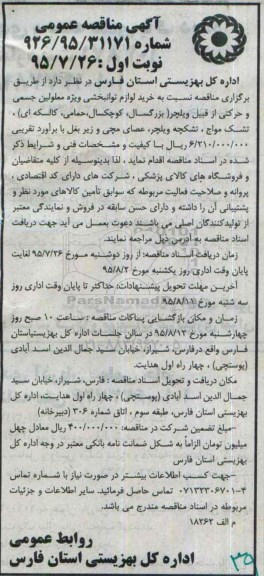 آگهی مناقصه عمومی
شماره ۹۲۶/۹۵/۳۱۱۷۱
نوبت اول :۹۵/۷/۲۶
اداره کل بهزیستی استان فارس در نظر دارد از طریق
برگزاری مناقصه نسبت به خرید لوازم توانبخشی ویژه معلولین جسمی
و حرکتی از قبیل ویلچر( بزرگسال، کوچکسال،حمامی، کالسکه ای) ،
تشک مواج ، تشکچه ویلچر، عصای مچی و زیر بغل با برآورد تقریبی
۶/۲۱۰/۰۰۰/۰۰۰ ریال با کیفیت و مشخصات فنی و شرایط ذکر
شده در اسناد مناقصه اقدام نماید ، لذا بدینوسیله از کلیه متقاضیان
و فروشگاه های کالای پزشکی ، شرکت های دارای کد اقتصادی ،
پروانه و صلاحیت فعالیت مربوطه که سوابق تأمین کالاهای مورد نظر و
پشتیبانی آن را داشته و دارای حسن سابقه در فروش و نمایندگی معتبر
از تولیدکنندگان اصلی می باشند دعوت بعمل می آید جهت دریافت
اسناد مناقصه به آدرس ذیل مراجعه نمایند.
زمان دریافت اسناد مناقصه: از روز دوشنبه مورخ ۹۵/۷/۲۶ لغایت
پایان وقت اداری روز یکشنبه مورخ ۹۵/۸/۲
آخرین مهلت تحویل پیشنهادات: حداکثر تا پایان وقت اداری روز
سه شنبه مورخ ۹۵/۸/۱۱
زمان و مکان بازگشایی پاکات مناقصه : ساعت ۱۰ صبح روز
چهارشنبه مورخ ۹۵/۸/۱۲ در سالن جلسات اداره کل بهزیستیاستان
فارس واقع درفارس، شیراز، خیابان سید جمال الدین اسد آبادی
(پوستچی) ، چهار راه اول هدایت.
مکان دریافت و تحویل اسناد مناقصه : فارس، شیراز، خیابان سید
جمال الدین اسد آبادی (پوستچی) ، چهار راه اول هدایت، اداره کل
بهزیستی استان فارس، طبقه سوم ، اتاق شماره ۳۰۶ (دبیرخانه)
-مبلغ تضمین شرکت در مناقصه: ۴۰۰/۰۰۰/۰۰۰ ریال معادل چهل
میلیون تومان الزاماً به شکل ضمانت نامه بانکی معتبر در وجه اداره کل
بهزیستی استان فارس
-جهت کسب اطلاعات بیشتر در صورت نیاز با شماره تماس
۰۷۱۳۲۳۰۶۷۰۱-۴ تماس حاصل فرمائید. سایر اطلاعات و جزئیات
مربوطه در اسناد مناقصه مندرج می باشد.
م الف ۱۸۲۶۲
روابط عمومی
اداره کل بهزیستی استان فارس
۳۵